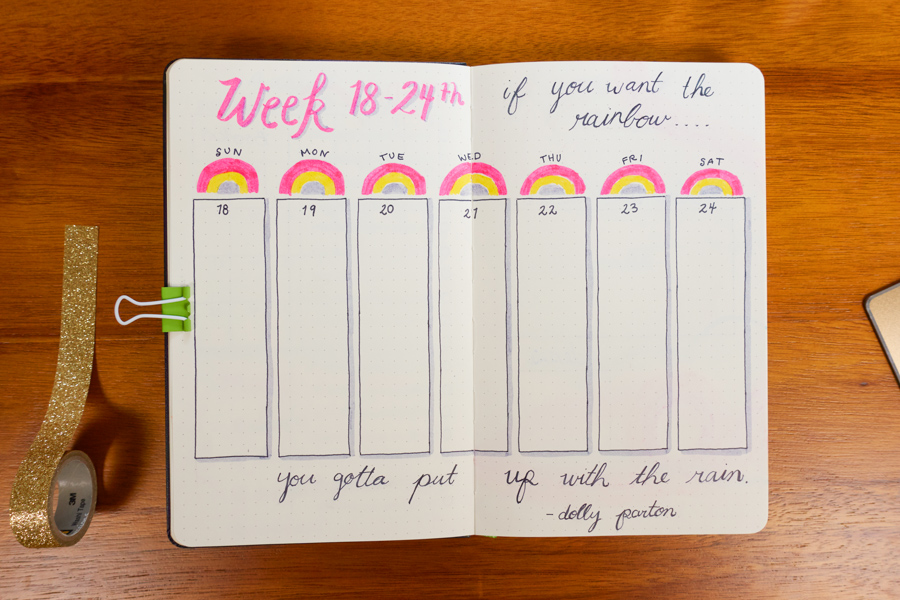 Week 18-24th
if you want the
rainbow....
SUN MON TUE WED THU FRI SAT
18 19 20 21 22 23 24
you gotta put up with the rain.
-dolly parton
3M